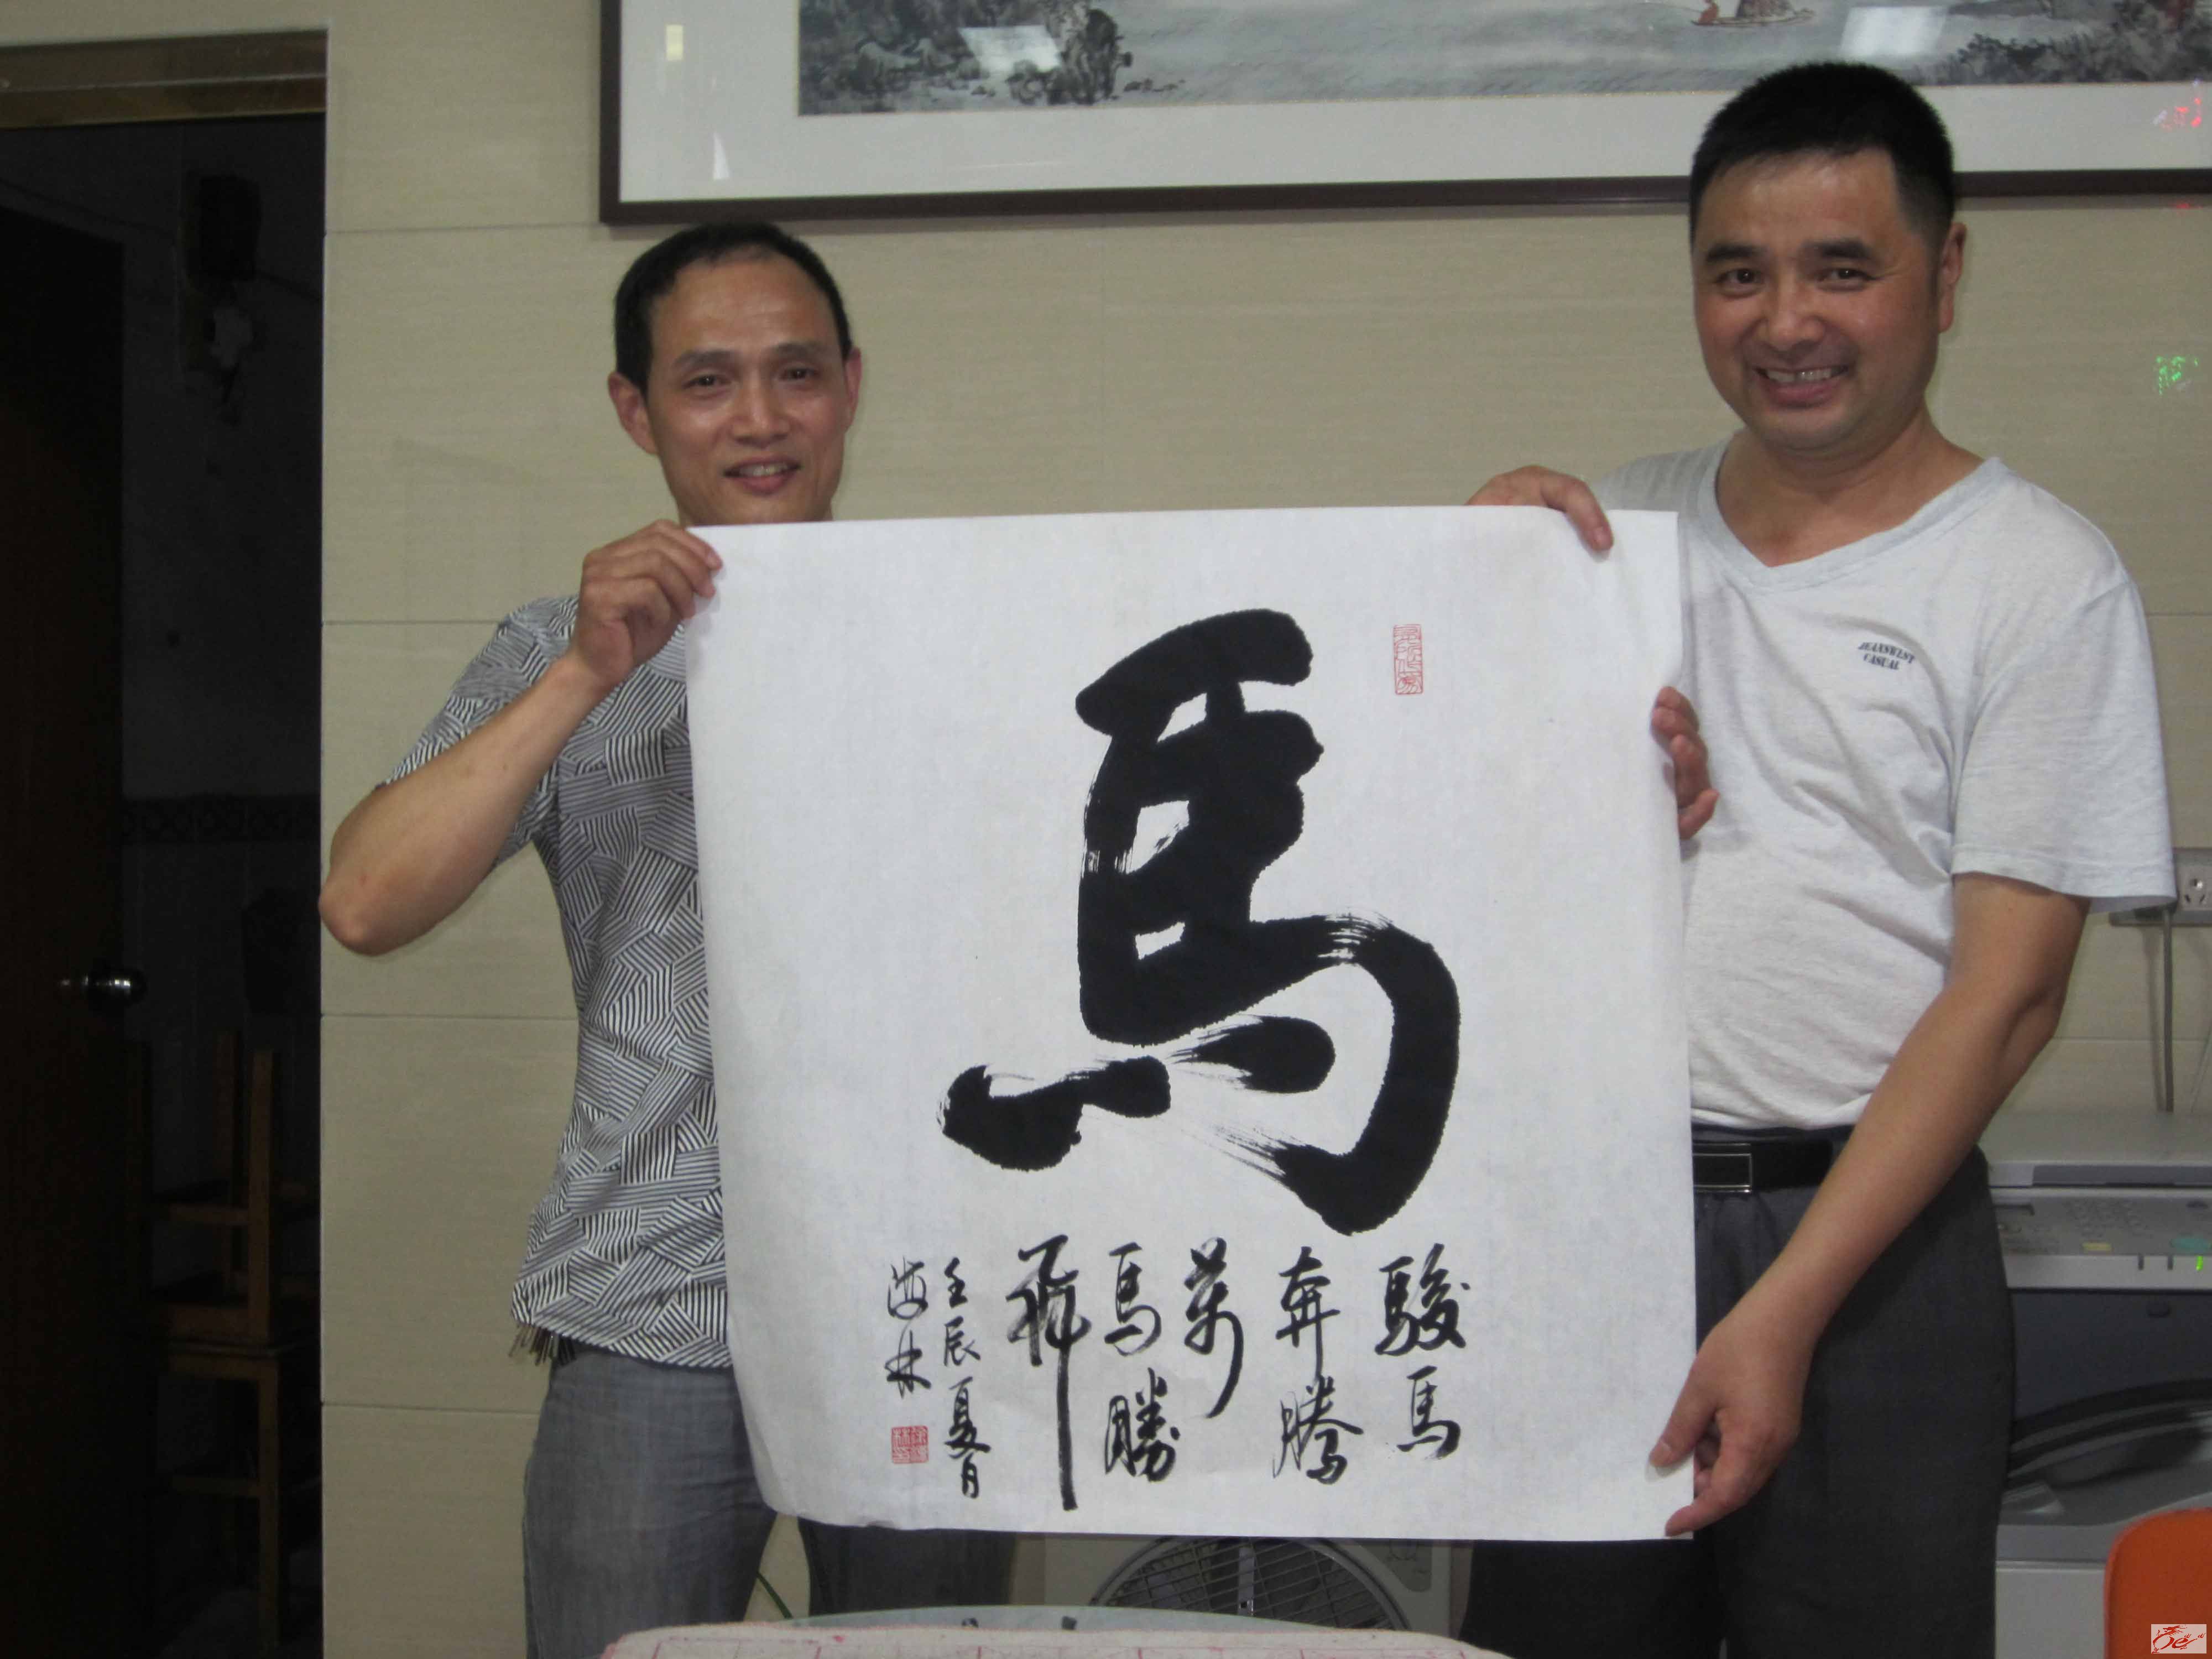 馬
駿馬
奔騰
萬
馬勝
飛
壬辰夏月
海林
JEANSWEST
CASUAL